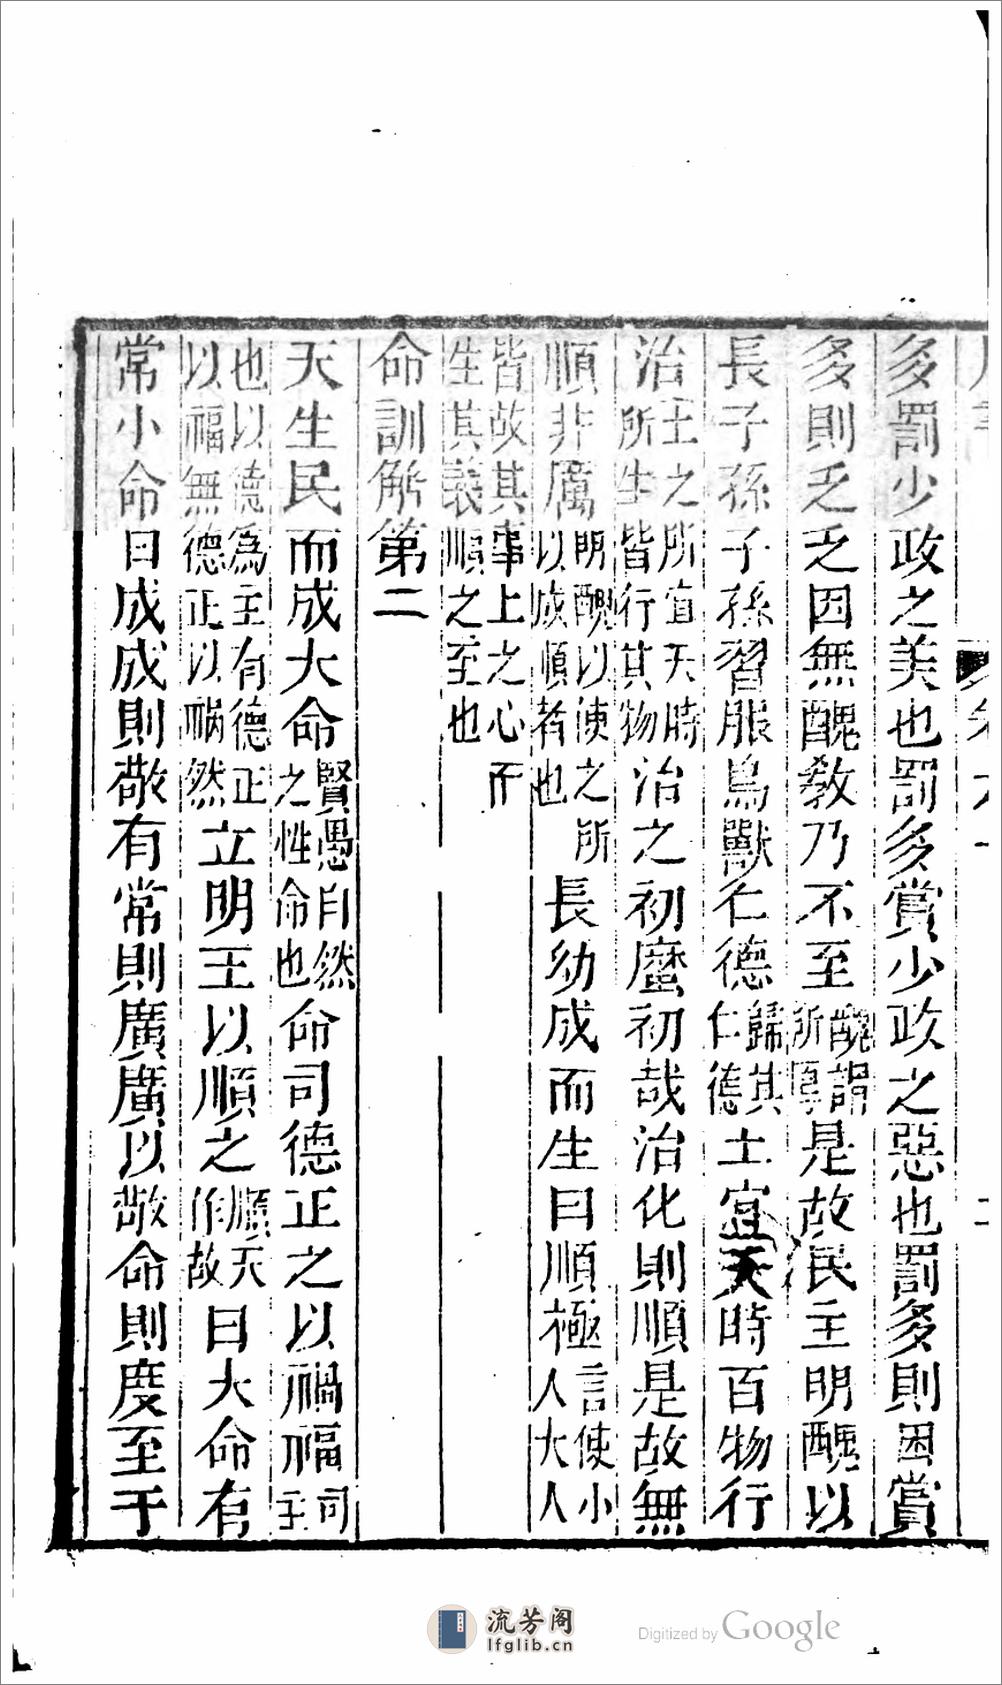 多罰少政之美也罰多賞少政之惡也罰多則困賞
多則乏乏困無醜教乃不至醜謂所厚是故民主明醜以
長子孫子孫習服鳥獸仁德歸其仁德土宜天時百物行
治土之所宜天時所生皆行其物治之初厘初哉治化則順是故無
順非厲明醜以使之所以成順者也長幼成而生曰順極言使小人大人
皆故其事上之心而生其義順之至也
命訓解第二
天生民而成大命賢愚自然之性命也命司德正之以禍福司主
也以德為主有德正以福無德正以禍然立明王以順之順天作故曰大命有
常小命日成成則敬有常則廣廣以敬命則度至于
Digitized by Google
流芳阁
lfglib.cn